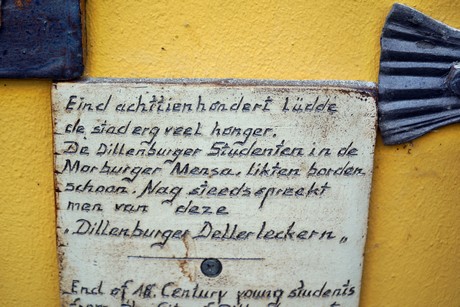 Eind achttienhondert Lüdde
de stad erg veel honger.
De Dillenburger Studenten in de
Marburger Mensa, likten borden
schoon. Nag steeds spreekt
men van deze
„Dillenburger Dellerleckern„
End of 18. Century young students
from the